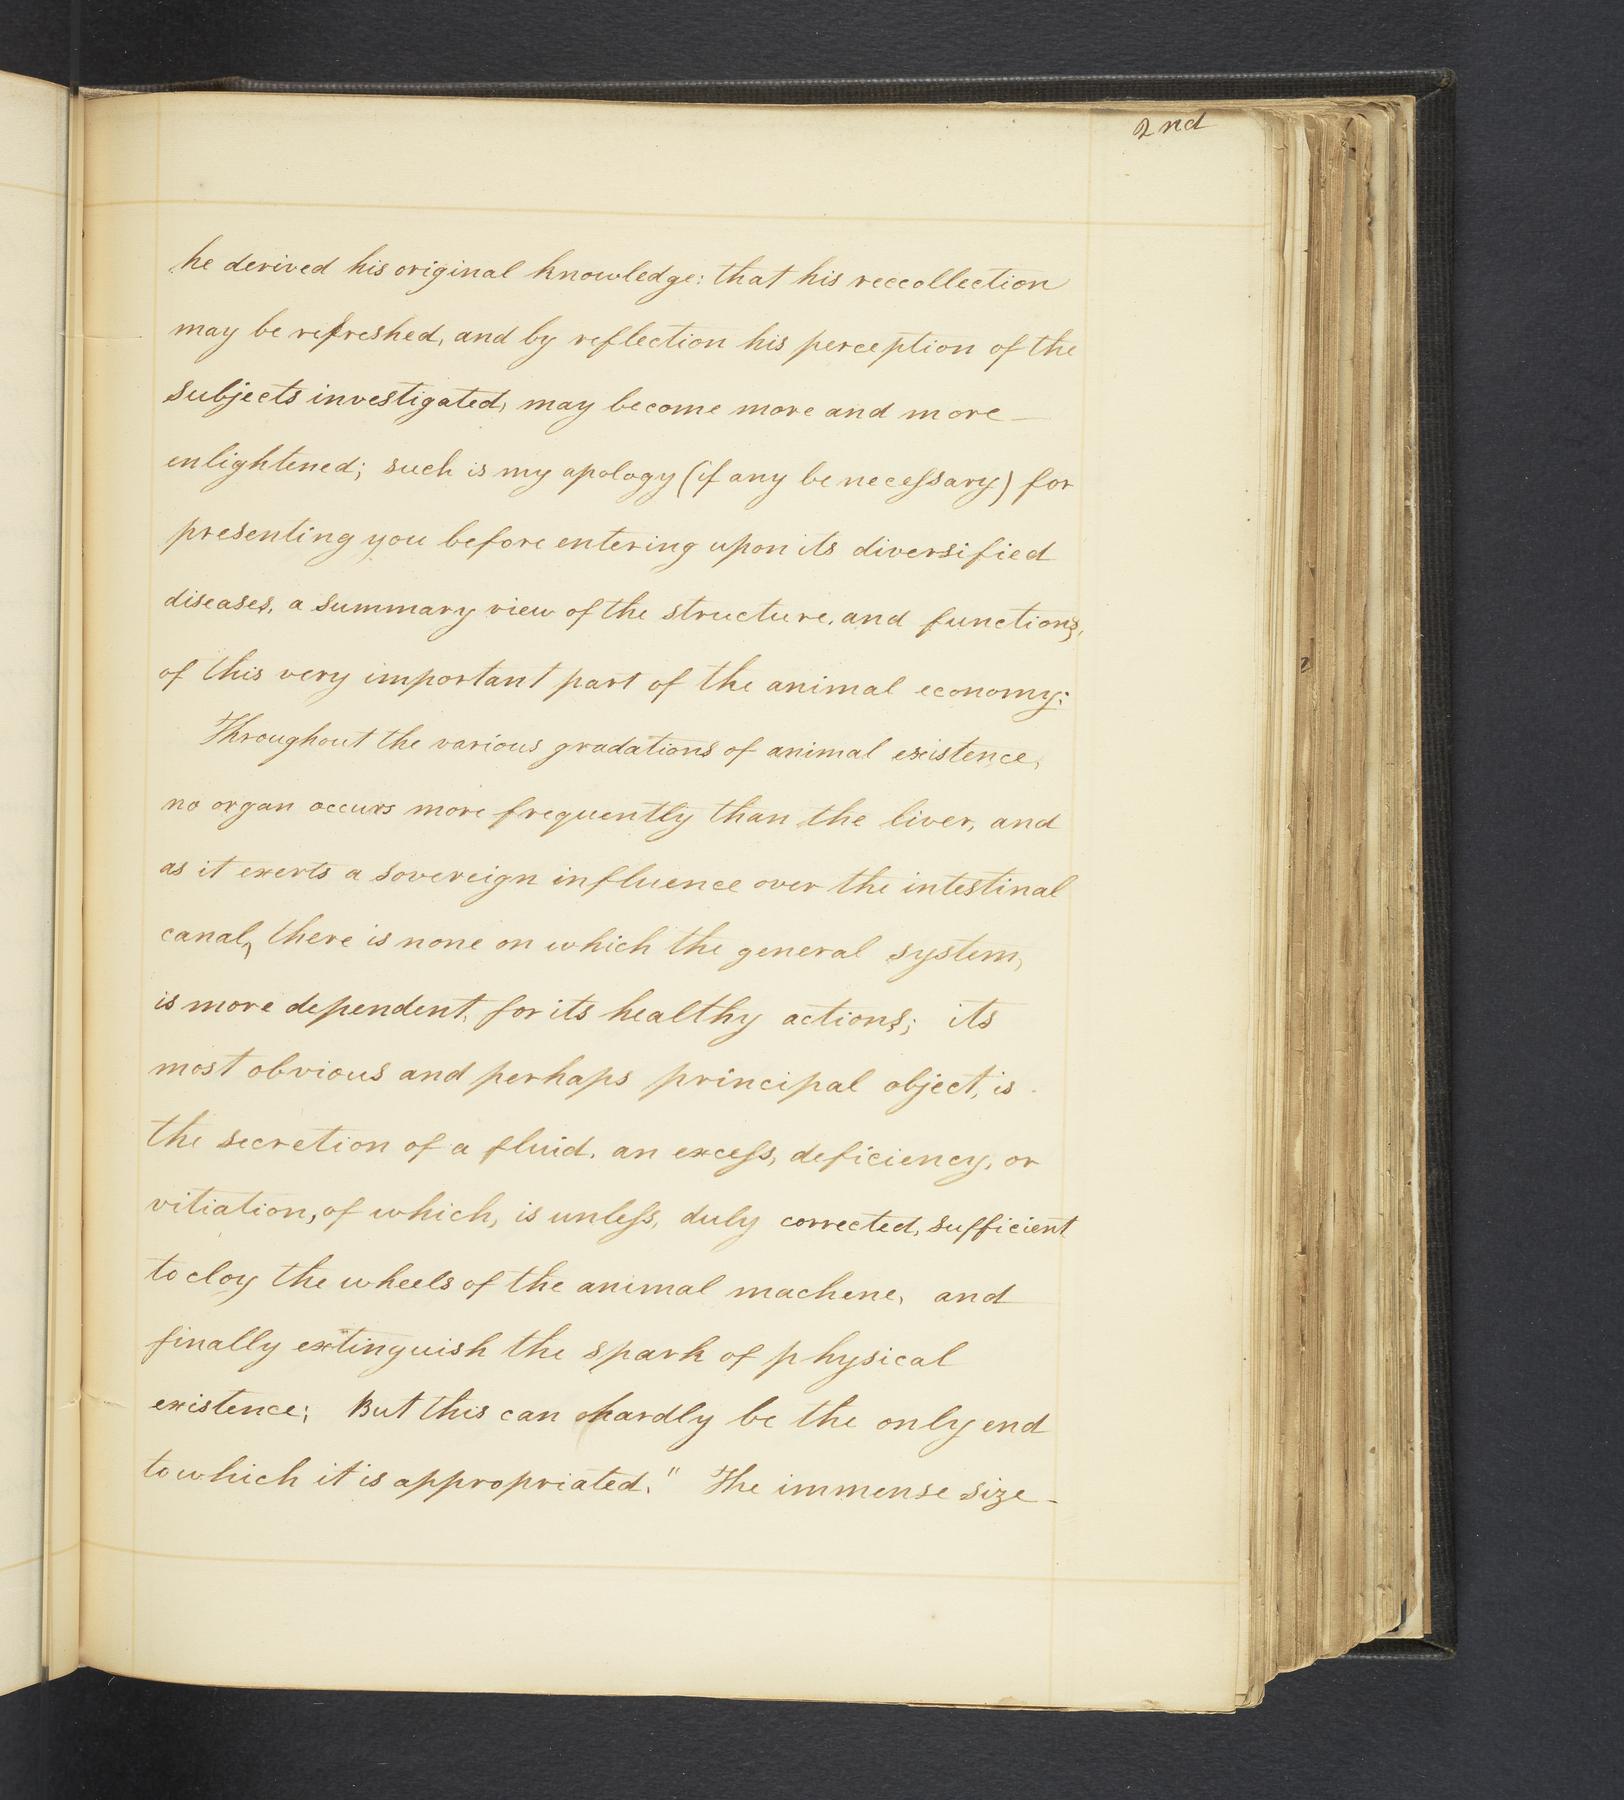 2nd
he derived his original knowledge: that his reccollection
may be refreshed, and by reflection his perception of the
subjects investigated, may become more and more —
enlightened; such is my apology (if any be neceſsary) for
presenting you before entering upon its diversified
diseases, a summary view of the structure, and functions,
of this very important part of the animal economy:
Throughout the various gradations of animal existence,
no organ occurs more frequently than the liver, and
as it exerts a sovereign influence over the intestinal
canal, there is none on which the general system,
is more dependent, for its healthy actions; its
most obvious and perhaps principal object, is
the secretion of a fluid, an exceſs, deficiency, or
vitiation, of which, is unleſs, duly corrected, sufficient
to cloy the wheels of the animal machene, and
finally extinguish the spark of physical
existence; But this can hardly be the only end
to which it is appropriated." The immense size —